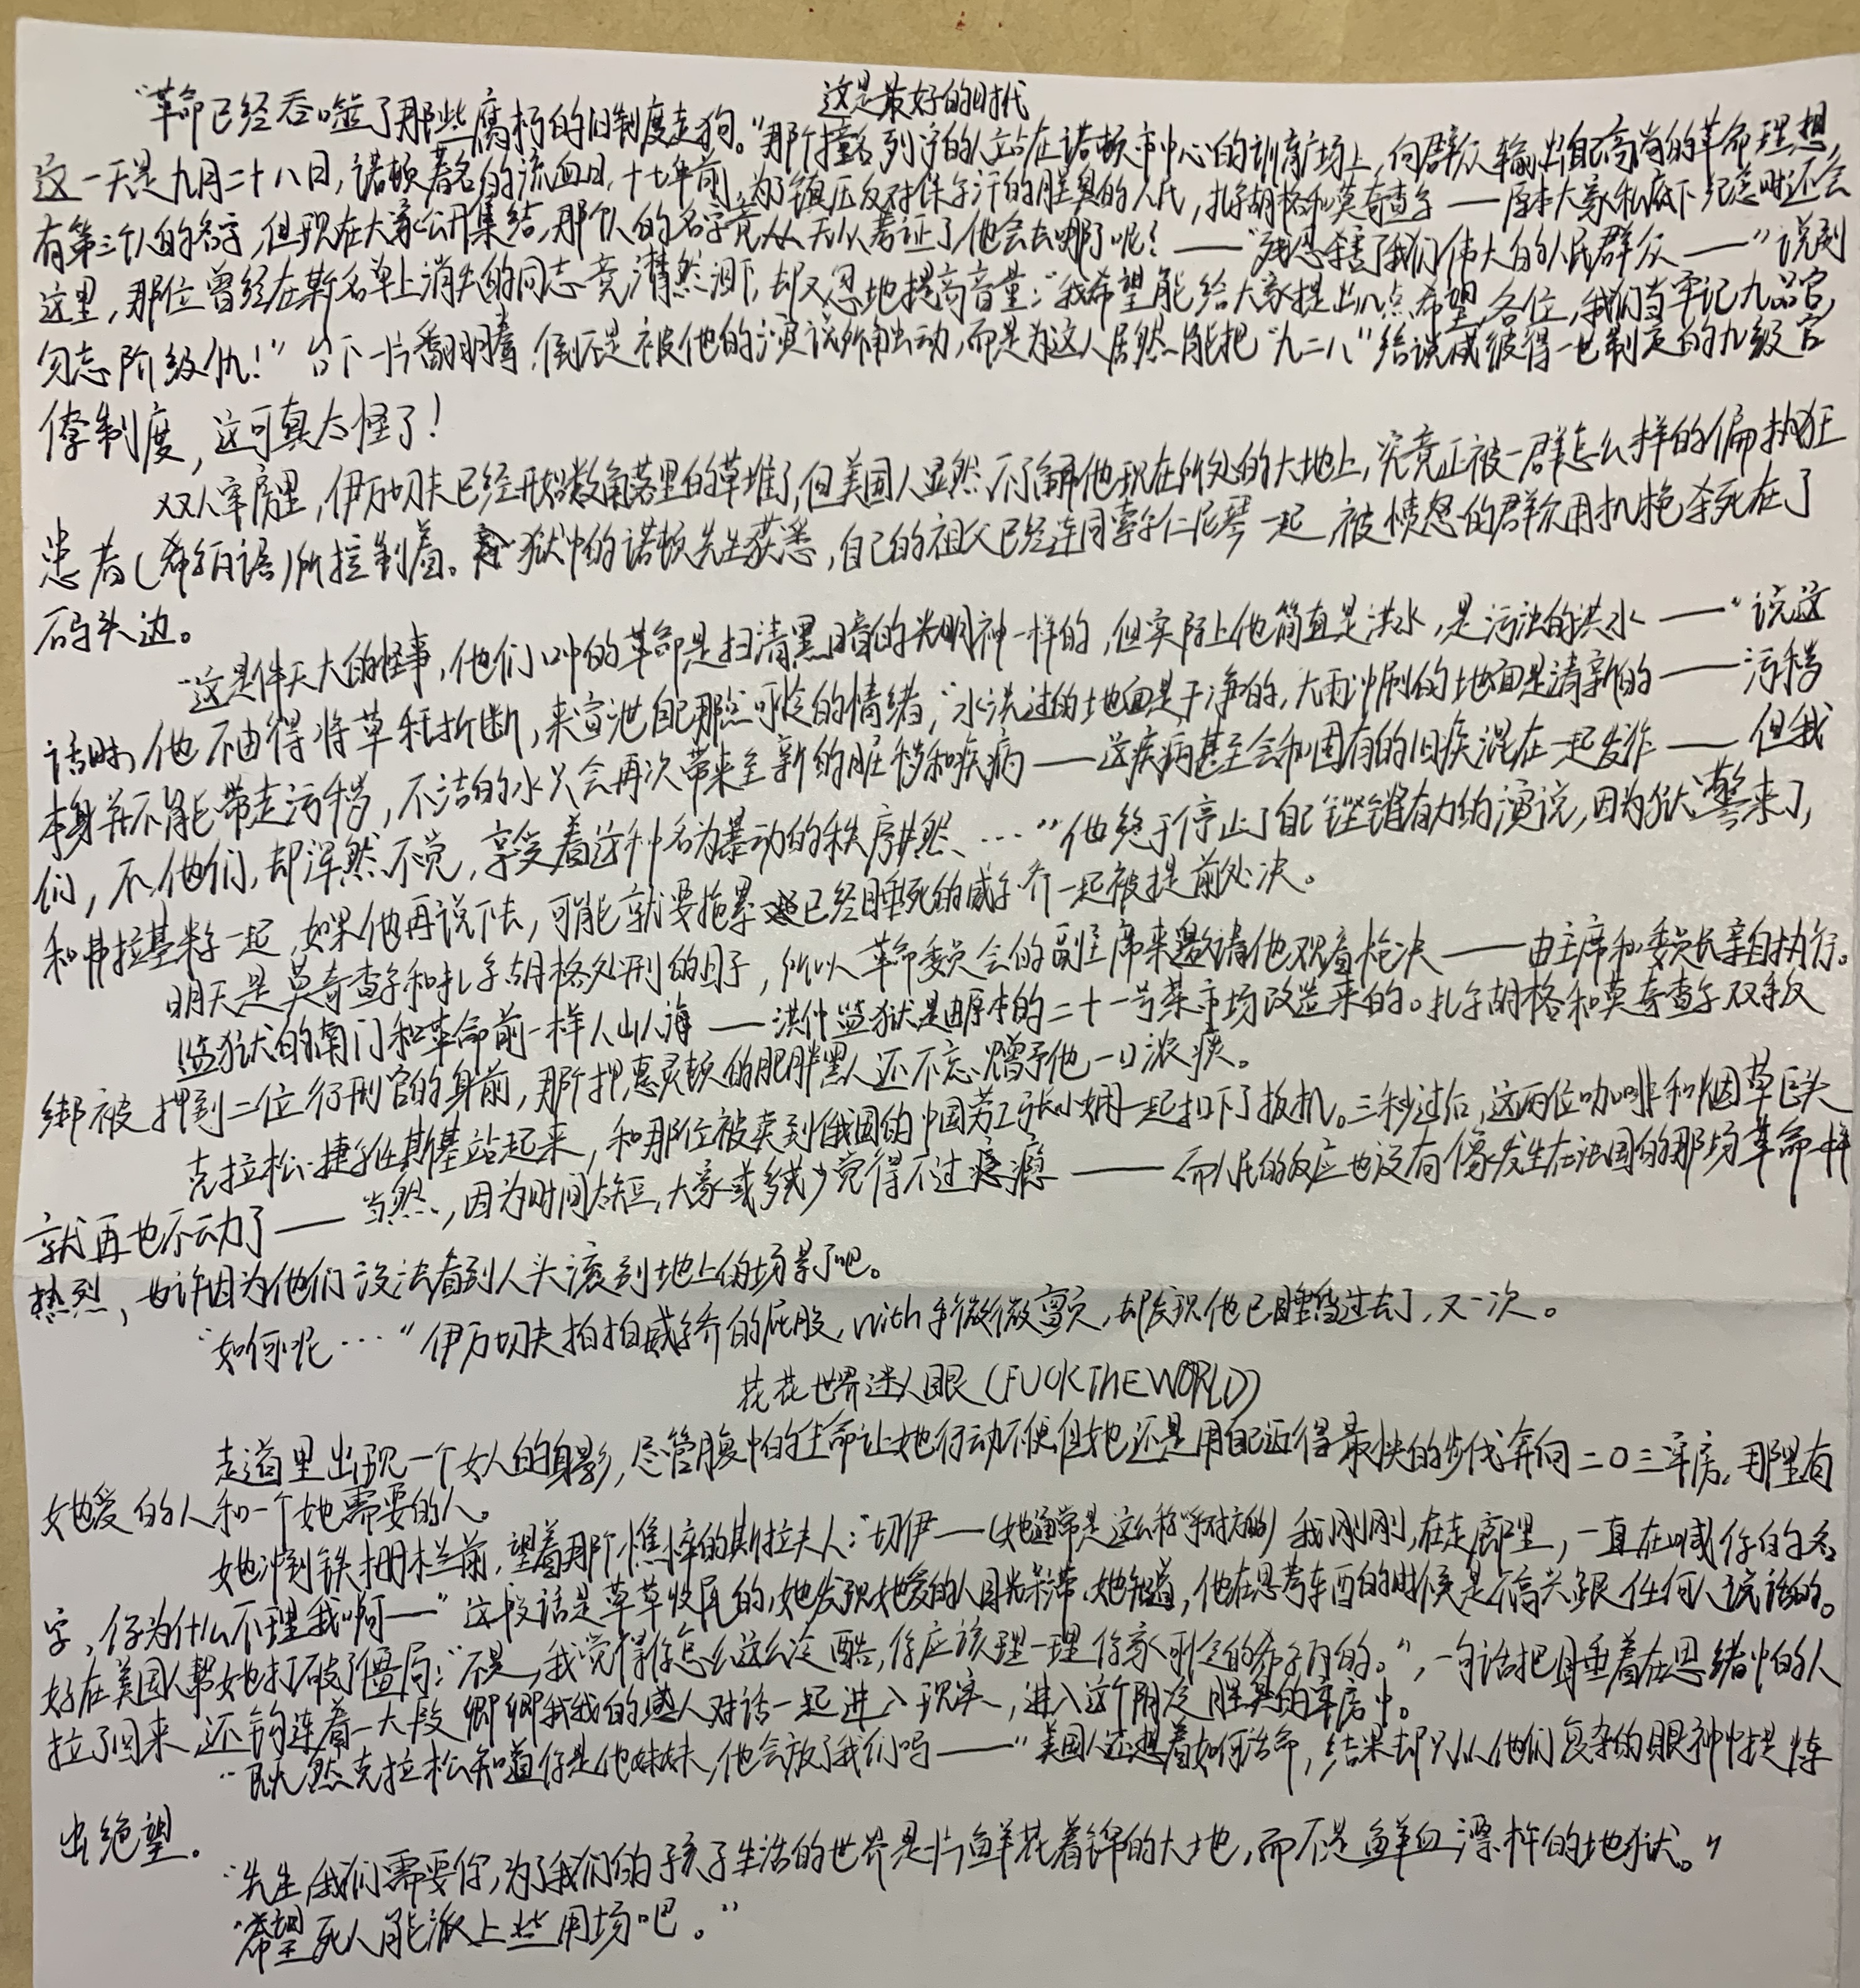 这是最好的时代
“革命已经吞噬了那些腐朽的旧制度走狗。”那个撞名列宁的人立站在诺顿市中心的训育广场上,向群众输出自己高尚的革命理想,
这一天是九月二十八日,诺顿著名的流血日,十七年前,为了镇压反对保尔汗的胜奥的人民,扎尔胡格和莫奇查尔——原本大家私底下纪念时还会
有第三个人的名字,但现在大家公开集结,那个人的名字竟从无从考证了,他会去哪了呢?——“残忍杀害了我们伟大的人民群众——”说到
这里,那位曾经在斩名单上消失的同志竟潸然泪下,却又忽地提高音量:“我希望能给大家提出几点希望,各位,我们当牢记九品官,
勿忘阶级仇!”台下一片翻涌着,倒不是被他的演说所触动,而是为这人居然能把“九二八”给说成彼得一世制定的九级官
僚制度,这可真太怪了!
双人牢房里,伊万切夫已经开始数角落里的草堆了,但美国人显然不了解他现在所处的大地上,究竟正被一群怎么样的偏执狂
患者(希尔月语)所控制着。狱中的诺顿先生获悉,自己的祖父已经连同索尔仁尼琴一起被愤怒的群众用机枪杀死在了
码头边。
“这是件天大的怪事,他们口中的革命是扫清黑暗的光明神一样的,但实际上他简直是洪水,是污浊的洪水——”说这
话时,他不由得将草秆折断,来宣泄自己那点可怜的情绪,“水洗过的地面是干净的,大雨冲刷的地面是清新的——污秽
本身并不能带走污秽,不洁的水只会再次带来至新的脏秽和疾病——这疾病甚至会和固有的旧疾混在一起发作——但我
们,不,他们,却浑然不觉,享受着这种名为暴动的秩序井然…”他终于停止了自己铿锵有力的演说,因为狱警来了,
和弗拉基米尔一起,如果他再说下去,可能就要拖累已经睡死的威尔乔一起被提前处决。
明天是莫奇查尔和扎尔胡格处刑的日子,所以革命委员会的副主席来邀请他观看枪决——由主席和委员长亲自执行。
监狱的南门和革命前一样人山人海——洪仲监狱是由原本的二十一号菜市场改造来的。扎尔胡格和莫奇查尔双手反
绑被押到二位行刑官的身前,那个押惠灵顿的肥胖黑人还不忘赠予他一口浓痰。
克拉松·捷尔任斯基站起来,和那位被卖到俄国的中国劳工张小娴一起扣下了扳机。三秒过后,这两位咖啡和烟草巨头
就再也不动了——当然,因为时间太短,大家或多或少觉得不过瘾——而人民的反应也没有像发生在法国的那场革命一样
热烈,也许因为他们没法看到人头滚到地上的场景了吧。
“如何呢…”伊万切夫拍拍威尔乔的屁股,with手微微颤,却发现他已睡过去了,又一次。
花花世界迷人眼(FUCK THE WORLD)
走道里出现一个女人的身影,尽管腹中的生命让她行动不便,但她还是用自己迈得最快的步伐奔向二〇三牢房,那里有
她爱的人和一个她需要的人。
她冲到铁栅栏前,望着那个憔悴的斯拉夫人:“切伊——(她通常是这么称呼对方的)我刚刚,在走廊里,一直在喊你的名
字,你为什么不理我啊——”这段话是草草收尾的,她发现她爱的人目光呆滞,她知道,他在思考东西的时候是不高兴跟任何人说话的。
好在美国人帮她打破了僵局:“不是,我觉得你怎么这么冷酷,你应该理一理你家刚到的希尔月的。”,一句话把睡着在思绪中的人
拉了回来,还钩连着一大段卿卿我我的感人对话一起进入现实,进入这个阴冷腥臭的牢房中。
“既然克拉松知道你是他妹妹,他会放了我们吗——”美国人还想着如何活命,结果却只从他们复杂的眼神中提炼
出绝望。
“先生,我们需要你,为了我们的孩子生活的世界是片鲜花着锦的大地,而不是鲜血漂杵的地狱。”
“希望死人能派上些用场吧。”